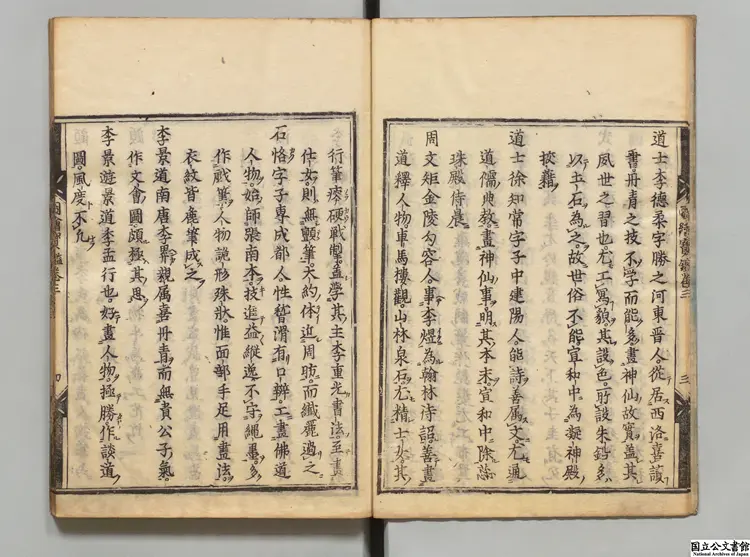 道士李德柔字勝之河東晋人從居西洛喜讀
書丹青之技不學而能多畫神仙故實蓋其
夙世之習也尤工寫貌其設色所設朱鉛多
以土石為之故世俗不能宣和中為凝神殿
挍籍
道士徐知常字子中建陽人能詩善属文尤通
道儒典教畫神仙事明其本末宣和中除蘂
珠殿侍晨
周文矩金陵句容人事李煜為翰林待詔善畫
道釋人物車馬樓觀山林泉石尤精士女其
行筆瘦硬戰掣蓋學其主李重光書法至畫
仕女則無顫筆大約体近周昉而纖麗過之
石恪字子専成都人性嵇滑有口辯工畫佛道
人物始師張南本技進益縱逸不守繩墨多
作戯筆人物詭形殊狀惟面部手足用畫法
衣紋皆麁筆成之
李景道南唐李昪親属喜丹青而無貴公子氣
作文會圖頗極其思
李景游景道季孟行也好畫人物極勝作談道
圖風度不凡
国立公文書館
National Archives of Japan